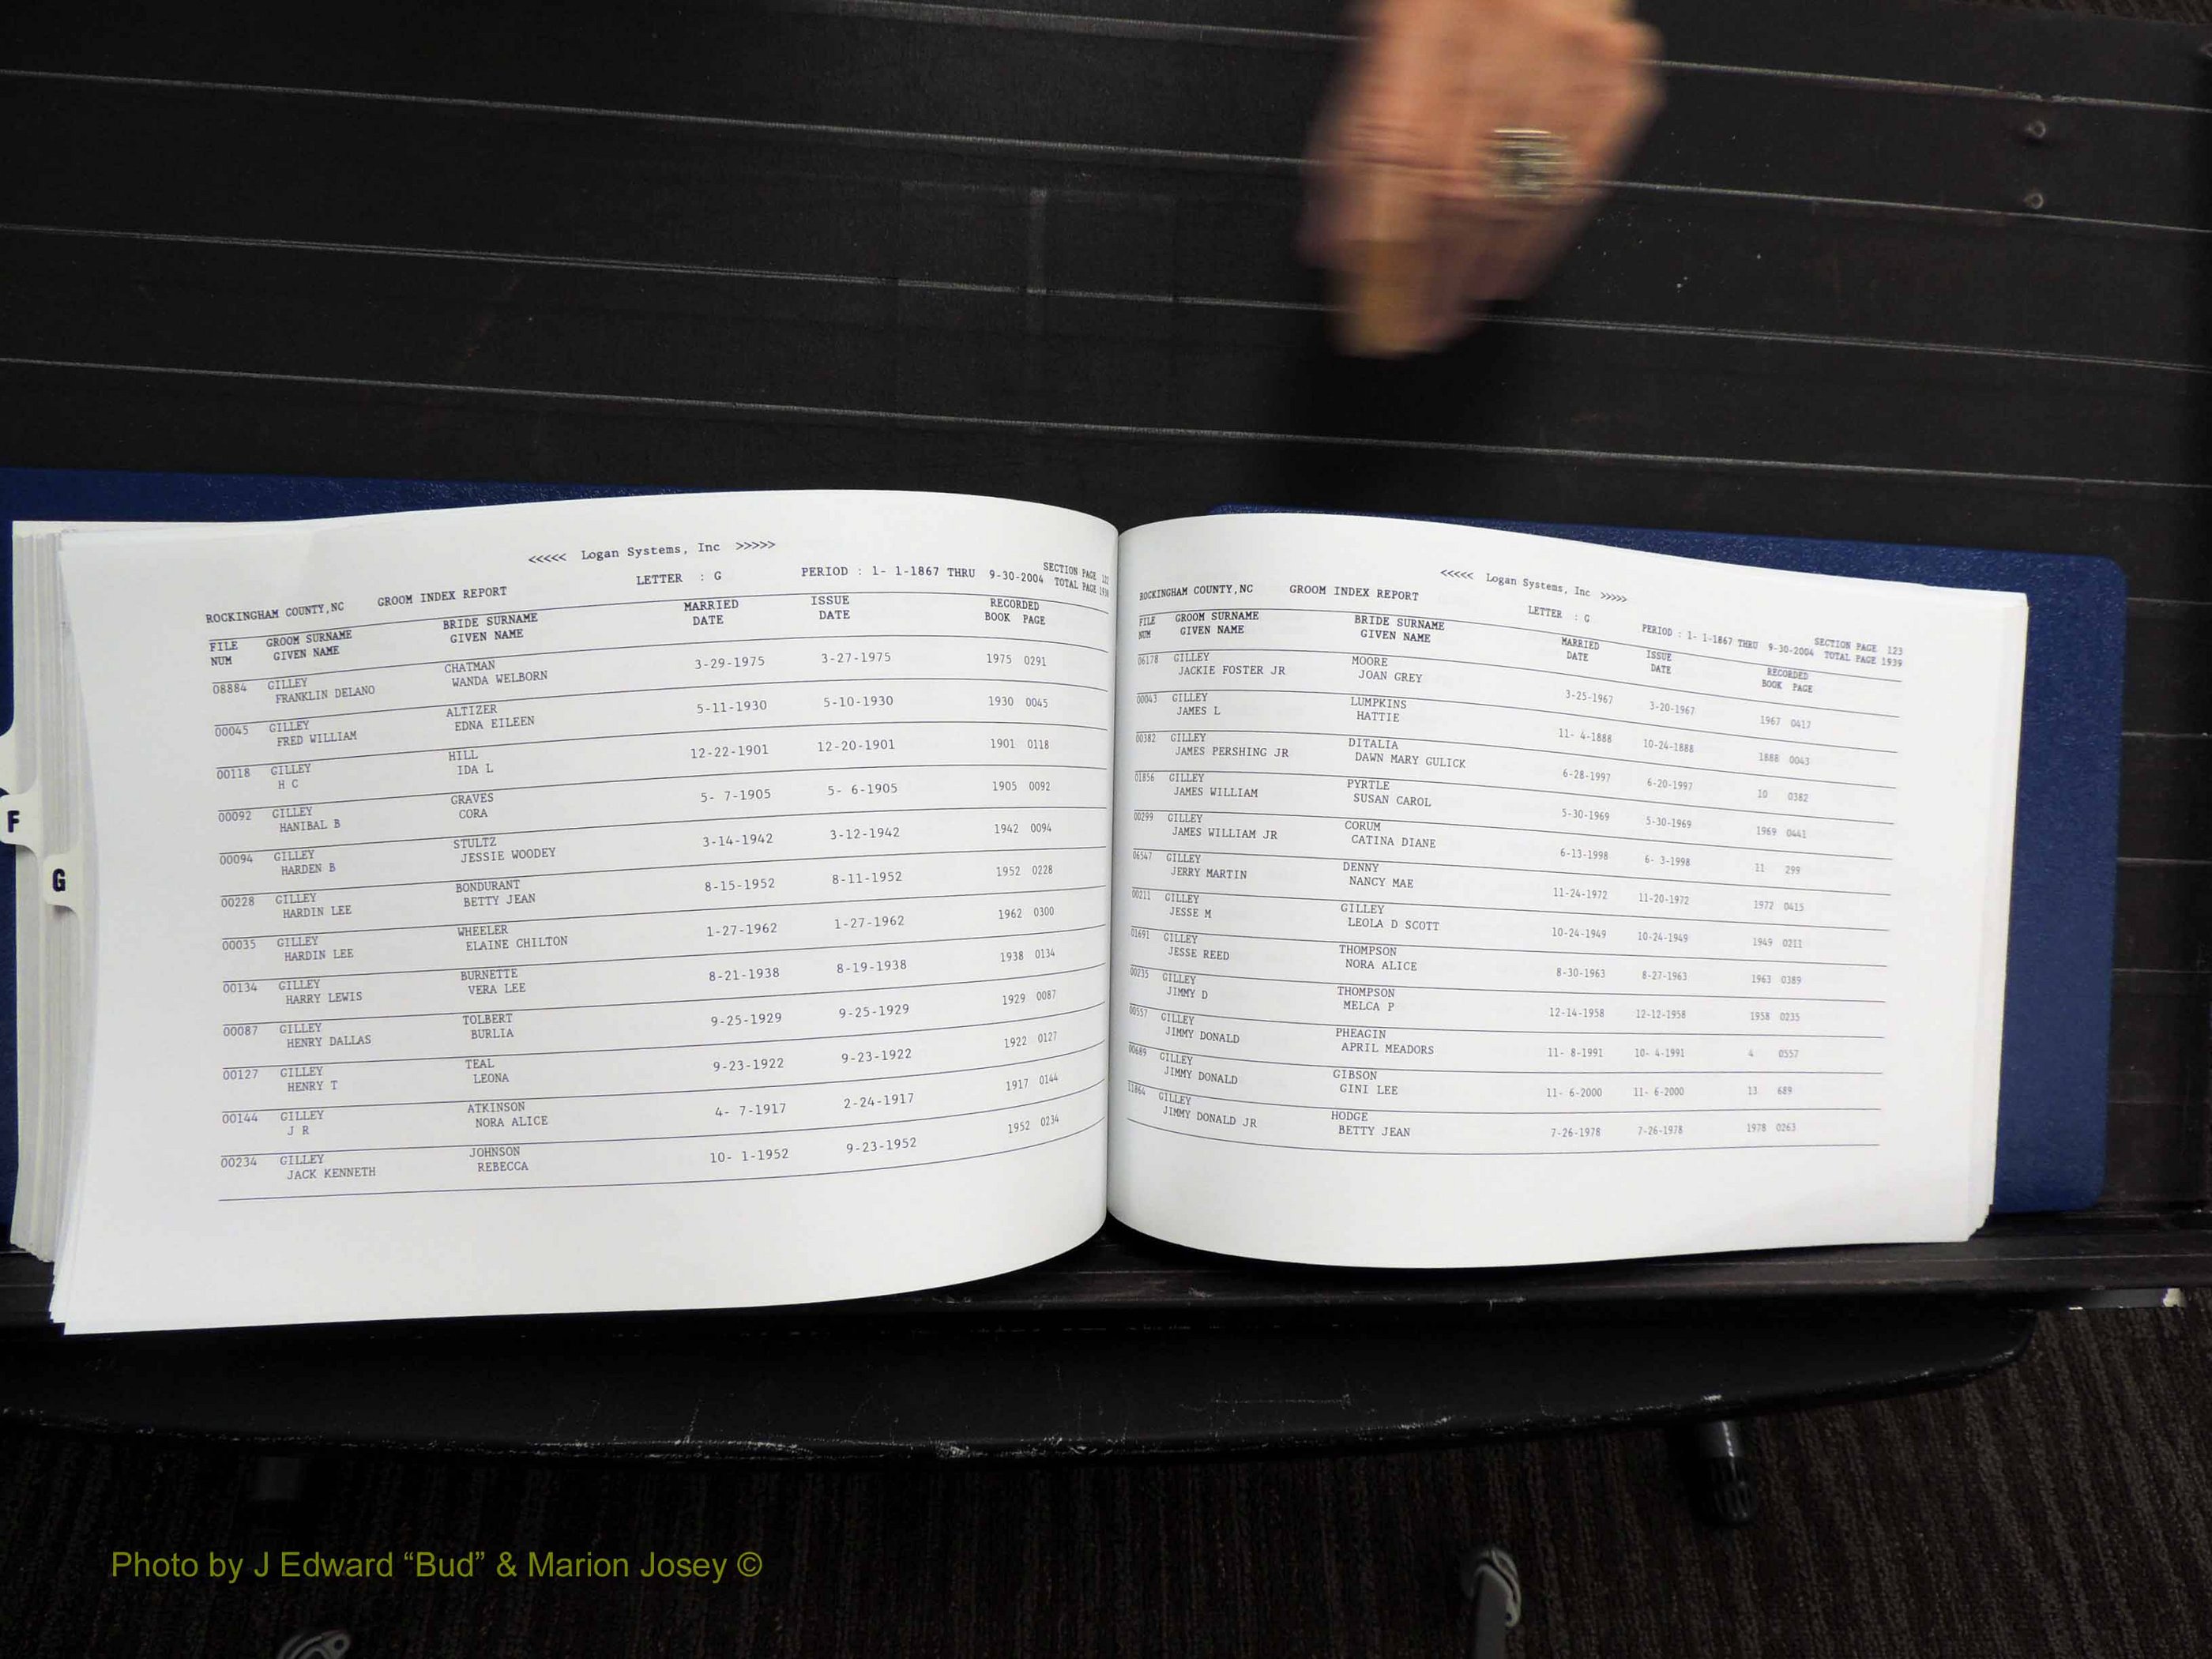 <<<<< Logan Systems, Inc >>>>>
ROCKINGHAM COUNTY,NC GROOM INDEX REPORT LETTER : G PERIOD : 1- 1-1867 THRU 9-30-2004 SECTION PAGE
TOTAL PAGE
FILE GROOM SURNAME BRIDE SURNAME MARRIED ISSUE RECORDED
NUM GIVEN NAME GIVEN NAME DATE DATE BOOK PAGE
08884 GILLEY CHATMAN 3-29-1975 3-27-1975 1975 0291
FRANKLIN DELANO WANDA WELBORN
00045 GILLEY ALTIZER 5-11-1930 5-10-1930 1930 0045
FRED WILLIAM EDNA EILEEN
00118 GILLEY HILL 12-22-1901 12-20-1901 1901 0118
H C IDA L
00092 GILLEY GRAVES 5- 7-1905 5- 6-1905 1905 0092
HANIBAL B CORA
00094 GILLEY STULTZ 3-14-1942 3-12-1942 1942 0094
HARDEN B JESSIE WOODEY
00228 GILLEY BONDURANT 8-15-1952 8-11-1952 1952 0228
HARDIN LEE BETTY JEAN
00035 GILLEY WHEELER 1-27-1962 1-27-1962 1962 0300
HARDIN LEE ELAINE CHILTON
00134 GILLEY BURNETTE 8-21-1938 8-19-1938 1938 0134
HARRY LEWIS VERA LEE
00087 GILLEY TOLBERT 9-25-1929 9-25-1929 1929 0087
HENRY DALLAS BURLIA
00127 GILLEY TEAL 9-23-1922 9-23-1922 1922 0127
HENRY T LEONA
00144 GILLEY ATKINSON 4- 7-1917 2-24-1917 1917 0144
J R NORA ALICE
00234 GILLEY JOHNSON 10- 1-1952 9-23-1952 1952 0234
JACK KENNETH REBECCA
F
G
<<<<< Logan Systems, Inc >>>>>
ROCKINGHAM COUNTY,NC GROOM INDEX REPORT LETTER : G PERIOD : 1- 1-1867 THRU 9-30-2004 SECTION PAGE 123
TOTAL PAGE 1939
FILE GROOM SURNAME BRIDE SURNAME MARRIED ISSUE RECORDED
NUM GIVEN NAME GIVEN NAME DATE DATE BOOK PAGE
06178 GILLEY MOORE 3-25-1967 3-20-1967 1967 0417
JACKIE FOSTER JR JOAN GREY
00043 GILLEY LUMPKINS 11- 4-1888 10-24-1888 1888 0043
JAMES L HATTIE
00382 GILLEY DITALIA 6-28-1997 6-20-1997 10 0382
JAMES PERSHING JR DAWN MARY GULICK
01856 GILLEY PYRTLE 5-30-1969 5-30-1969 1969 0441
JAMES WILLIAM SUSAN CAROL
00299 GILLEY CORUM 6-13-1998 6- 3-1998 11 299
JAMES WILLIAM JR CATINA DIANE
06547 GILLEY DENNY 11-24-1972 11-20-1972 1972 0415
JERRY MARTIN NANCY MAE
00211 GILLEY GILLEY 10-24-1949 10-24-1949 1949 0211
JESSE M LEOLA D SCOTT
01691 GILLEY THOMPSON 8-30-1963 8-27-1963 1963 0389
JESSE REED NORA ALICE
00235 GILLEY THOMPSON 12-14-1958 12-12-1958 1958 0235
JIMMY D MELCA P
00557 GILLEY PHEAGIN 11- 8-1991 10- 4-1991 4 0557
JIMMY DONALD APRIL MEADORS
00689 GILLEY GIBSON 11- 6-2000 11- 6-2000 13 689
JIMMY DONALD GINI LEE
11864 GILLEY HODGE 7-26-1978 7-26-1978 1978 0263
JIMMY DONALD JR BETTY JEAN
Photo by J Edward “Bud” & Marion Josey ©